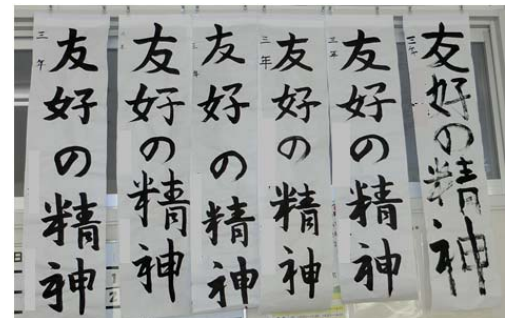 三年
友好の精神
三年
友好の精神
三年
友好の精神
三年
友好の精神
三年
友好の精神
三年
友好の精神